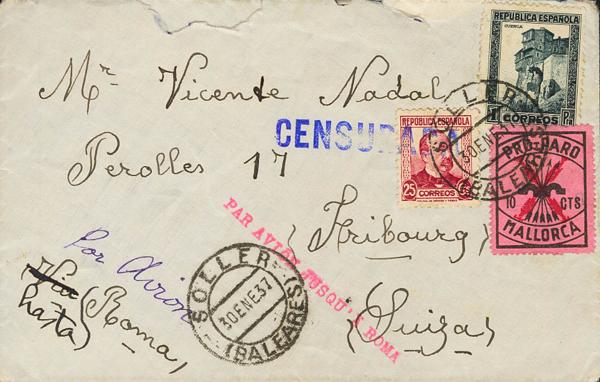 REPUBLICA ESPAÑOLA
CUENCA
1 CORREOS Pta
Mr Vicente Nadal
CENSURADA
REPUBLICA ESPAÑOLA
25 CORREOS
SOLLER
30 ENE 37
(BALEARES)
PRO-PARO
10 CTS
MALLORCA
Perolles 17
PAR AVION JUSQU'A ROMA
(Fribourg)
Por Avion
Via (Roma)
hasta
SOLLER
30 ENE 37
(BALEARES)
(Suiza)